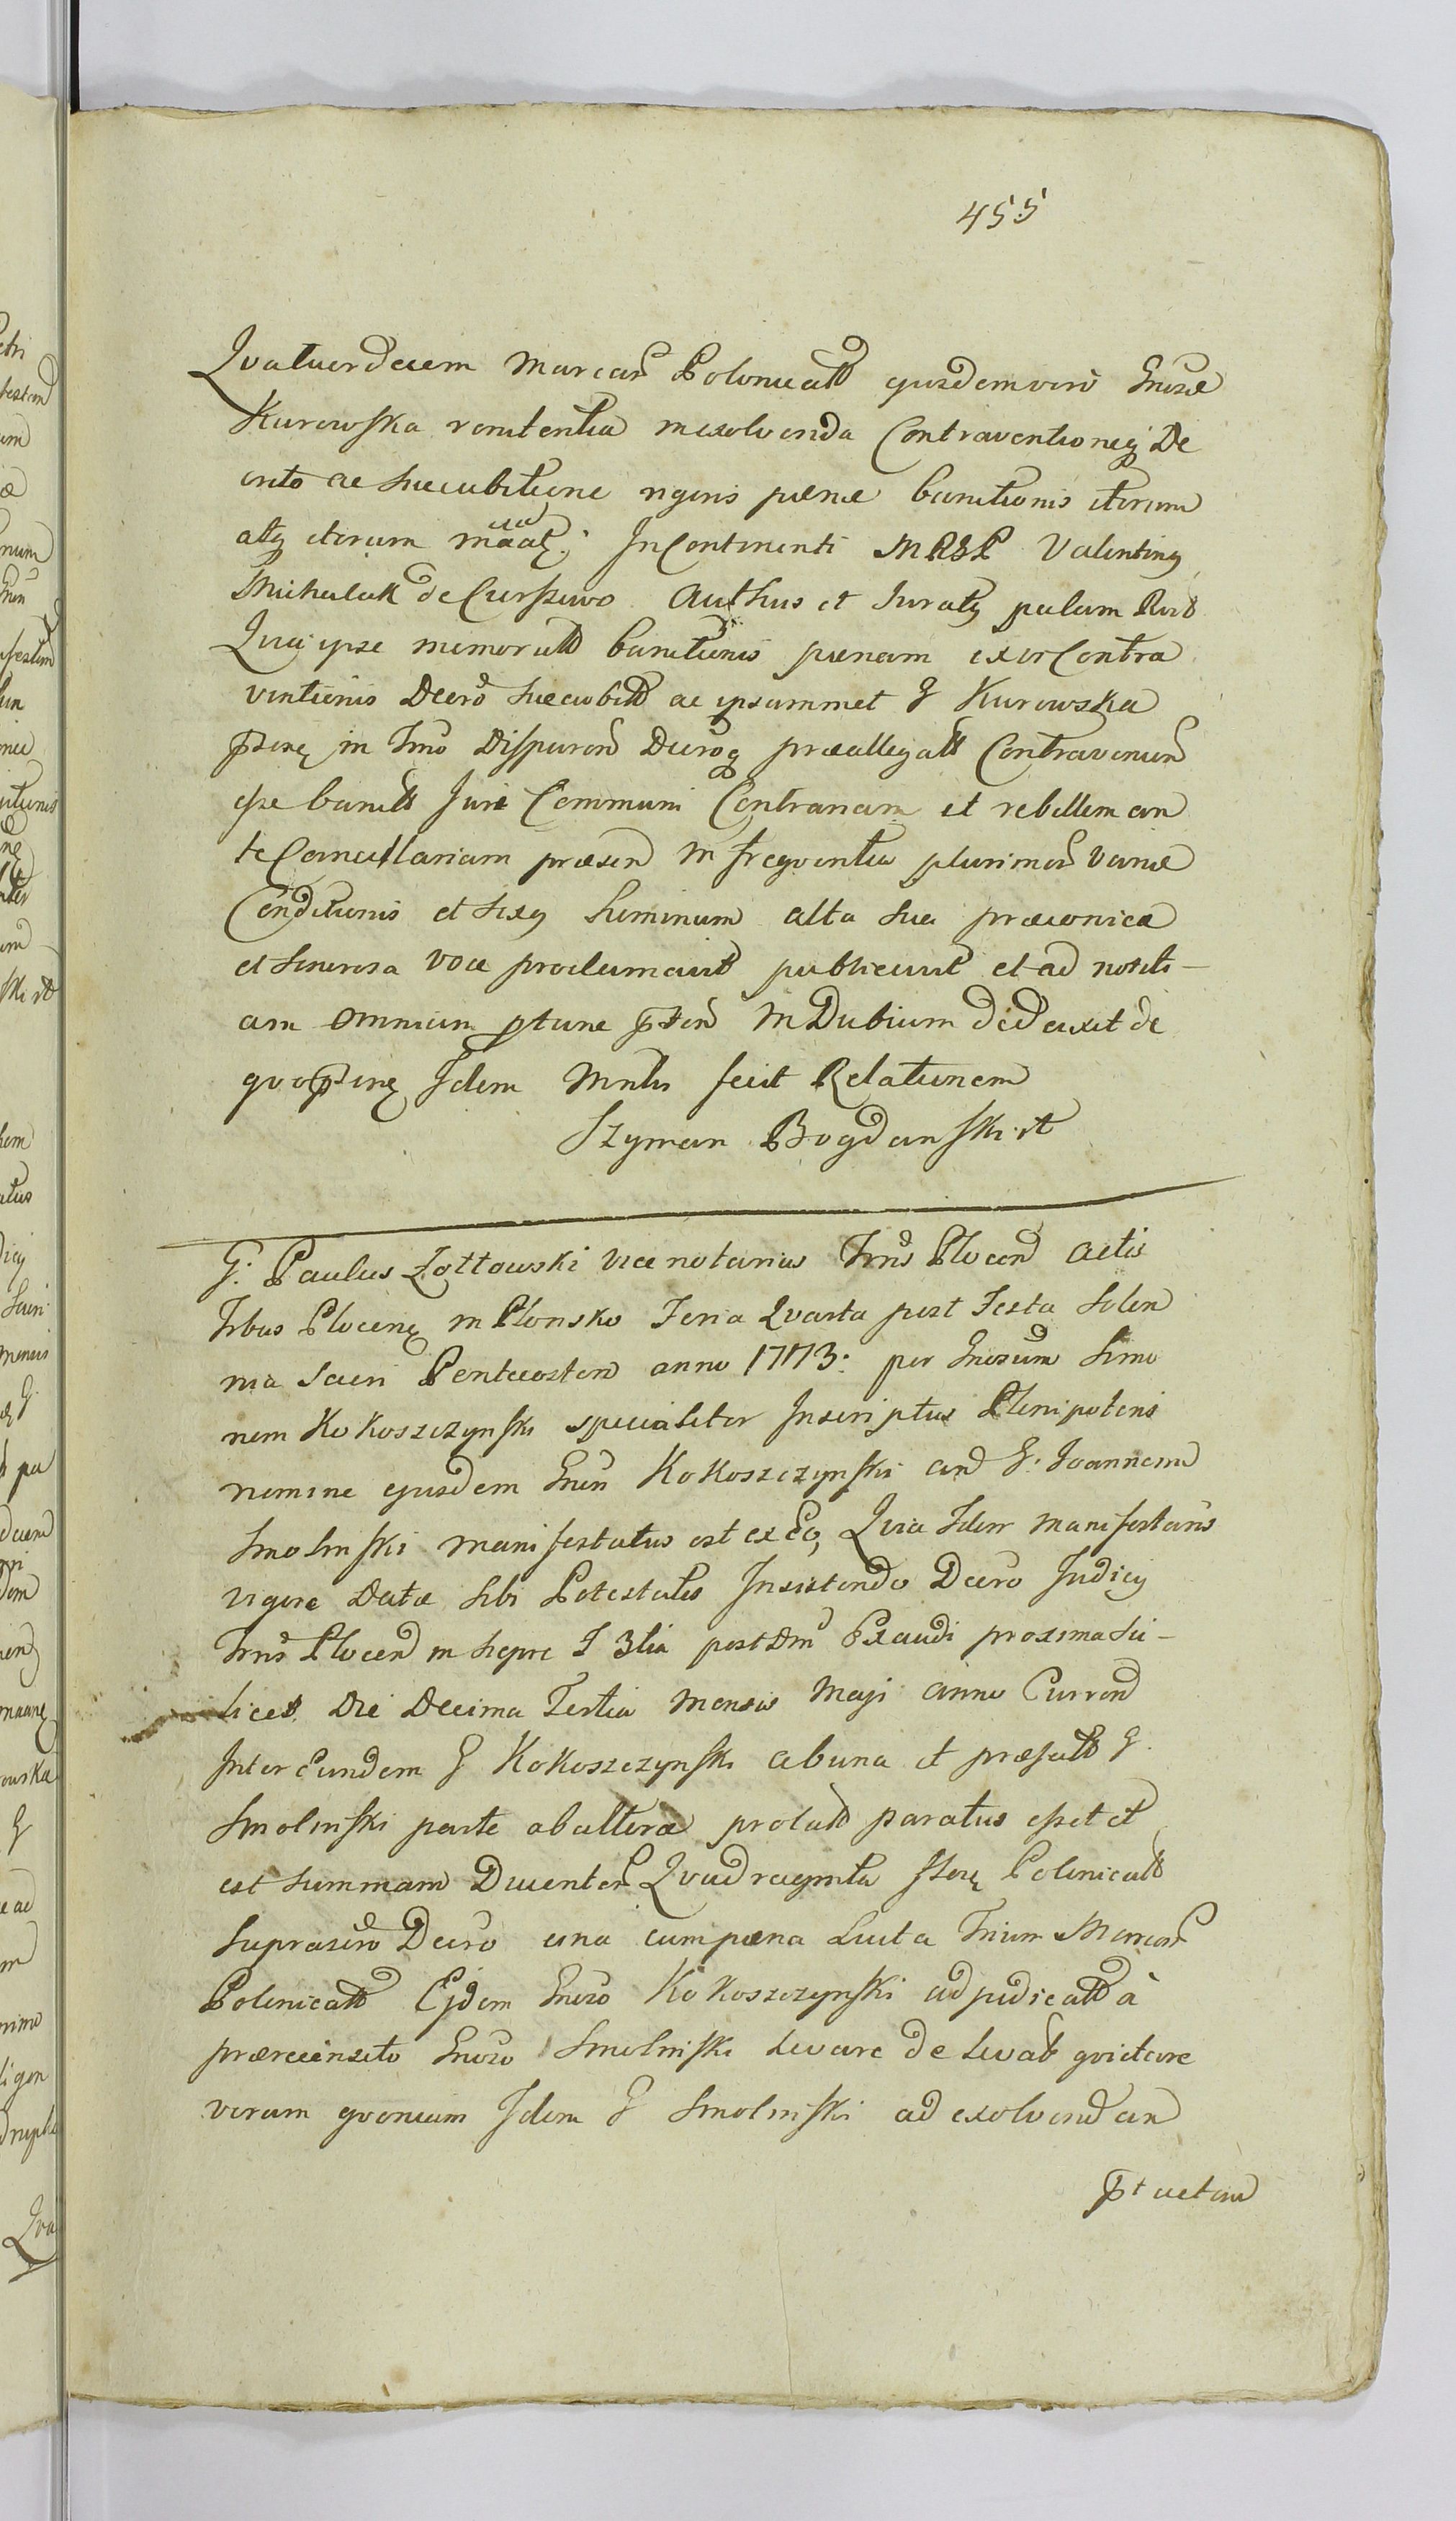 455
Qvatuordecem Marcar Polonicalt ejusdemviri Gnosae
Kurowska renitentia inexolvenda Contraventioneq De
creto ac succubitione rigoris paenae banitionis iterum
atq iterum maalq; InContinenti MRSP Valentinq
Michalak de Curszewo Authus et Juratq palam Rect
Quia ipse memoratt banitionis paenam ex vi Contra
ventionis Decro succubitt ac ipsammet G Kurowska
pserq in Tmo Disparen Decroq praeallegatt Contravenien
esse banitt Juri Communi Contrariam et rebellem an
te Cancellariam praesen in freqventia plurimor variae
Conditionis et sexq hominum alta sua praeconica
et sonorosa voce proclamavit publicavit et ad notiti-
am omnium ptunc psen in Dubium deduxit de
qvo pserq Idem Mntlis fecit Relationem
Szyman Bogdanski rt
G. Paulus Zołtowski vice notarius Trris Plocen Actis
Trbus Plocenq in Plonsko Feria Qvarta post Festa Solen
nia Sacri Pentecosten anno 1773. per Gnosum Simo
nem Kokoszczynski specialiter Inscriptus Plenipotens
nomine ejusdem Gnsi Kokoszczynski an G. Joannem
Smolinski manifestatus est ex Eo, Qvia Idem manifestans
vigore Datae sibi Potestatis Insistendo Decro Judicy
Trris Plocen in Sepre F 3tia post Dm Exaudi proxima sci-
licet Die Decima Tertia Mensis Maji anno Curren
Inter Eundem G Kokoszczynski ab una et praefatt G.
Smolinski parte ab altera prolatt paratus esset et
est summam Ducentor Qvadraginta ftorq Polonicalt
suprascro Decro una cum paena Luita Trium Marcar
Polonicatt Ejdem Gnoso Kokoszczynski adjudicatt à
praerecensito Gnoso Smolinski levare de levat qvietare
verum qvoniam Idem G Smolinski ad exolvend an
pt actam